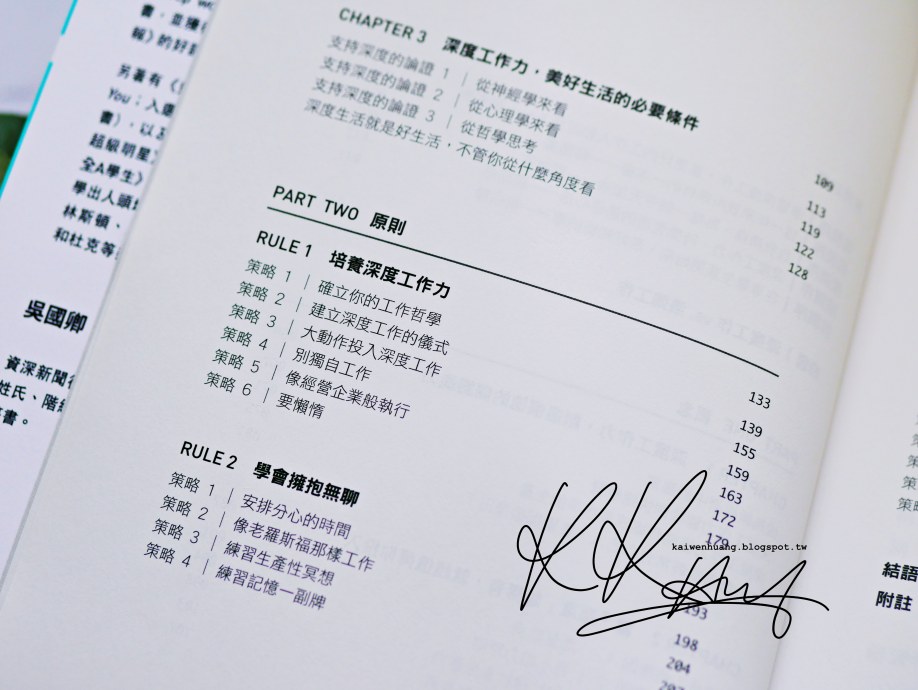 書，並獲
報》的好
另著有《
You；入
書），以
超級明星
全A學生》
學出人頭
林斯頓、
和杜克等
吳國卿
資深新聞
姓氏、階
書。
CHAPTER 3 深度工作力，美好生活的必要條件 109
支持深度的論證 1｜從神經學來看 113
支持深度的論證 2｜從心理學來看 119
支持深度的論證 3｜從哲學思考 122
深度生活就是好生活，不管你從什麼角度看 128
PART TWO 原則
RULE 1 培養深度工作力 133
策略 1｜確立你的工作哲學 139
策略 2｜建立深度工作的儀式 155
策略 3｜大動作投入深度工作 159
策略 4｜別獨自工作 163
策略 5｜像經營企業般執行 172
策略 6｜要懶惰 179
RULE 2 學會擁抱無聊 193
策略 1｜安排分心的時間 198
策略 2｜像老羅斯福那樣工作 204
策略 3｜練習生產性冥想
策略 4｜練習記憶一副牌
kaiwenhuang.blogspot.tw
結語
附註